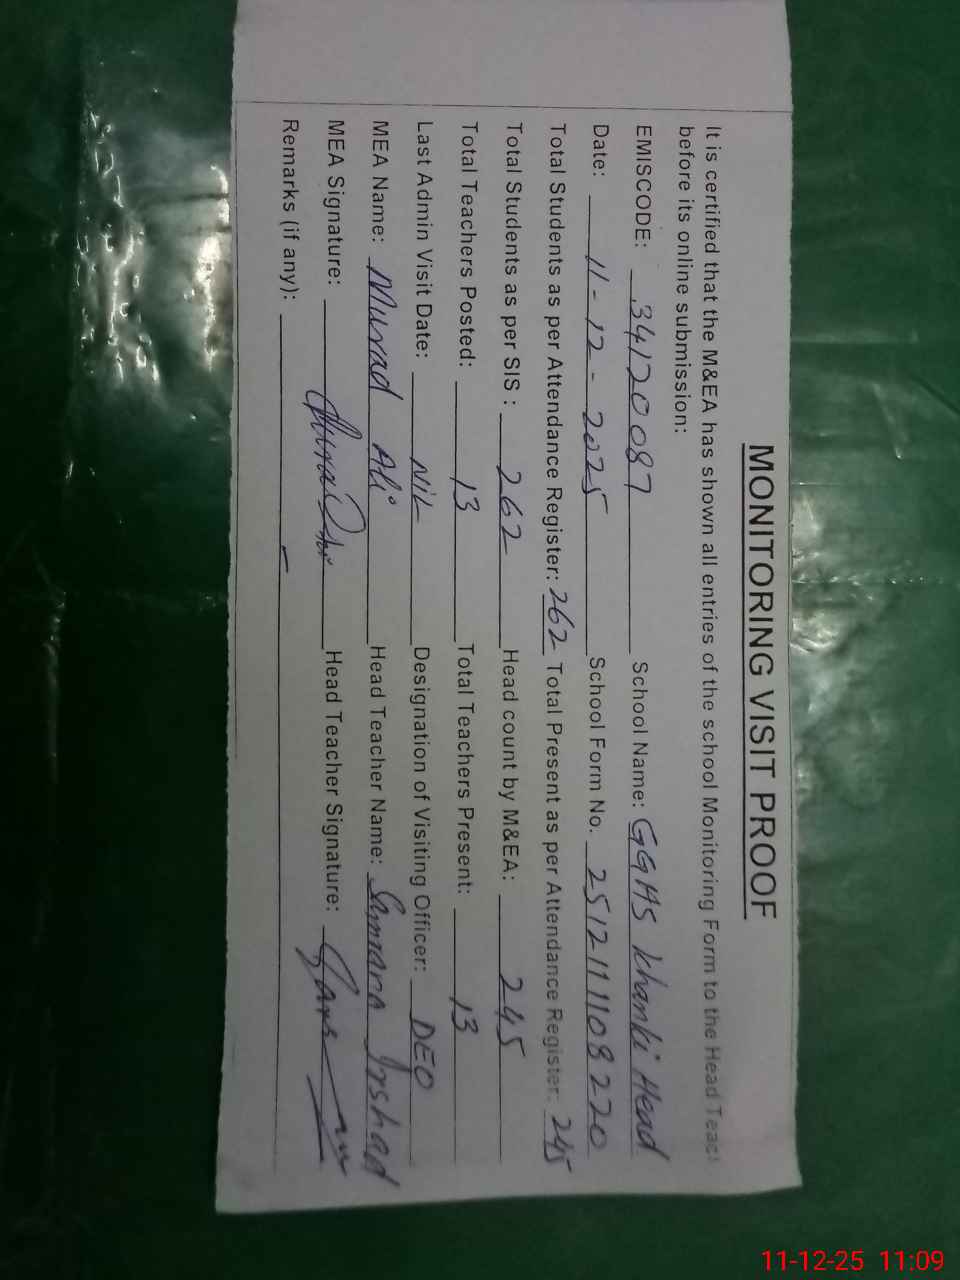 MONITORING VISIT PROOF
It is certified that the M&EA has shown all entries of the school Monitoring Form to the Head Teac
before its online submission:
EMISCODE: 34120087 School Name: GGHS Khanki Head
Date: 11-12-2025 School Form No. 251211108220
Total Students as per Attendance Register: 262 Total Present as per Attendance Register: 245
Total Students as per SIS : 262 Head count by M&EA: 245
Total Teachers Posted: 13 Total Teachers Present: 13
Last Admin Visit Date: NIL Designation of Visiting Officer: DEO
MEA Name: Murad Ali Head Teacher Name: Samara Irshad
MEA Signature: Head Teacher Signature:
Remarks (if any): -
11-12-25 11:09